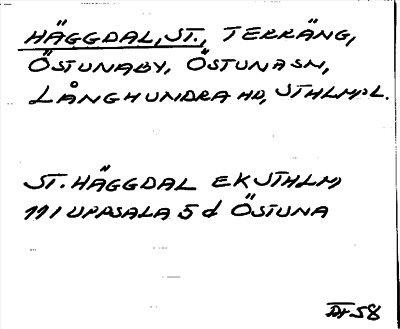 HÄGGDAL, ST., TERRÄNG,
ÖSTUNABY, ÖSTUNA SN,
LÅNGHUNDRA HD, STHLMS L.
ST. HÄGGDAL EK STHLM
111 UPPSALA 5 d ÖSTUNA
58